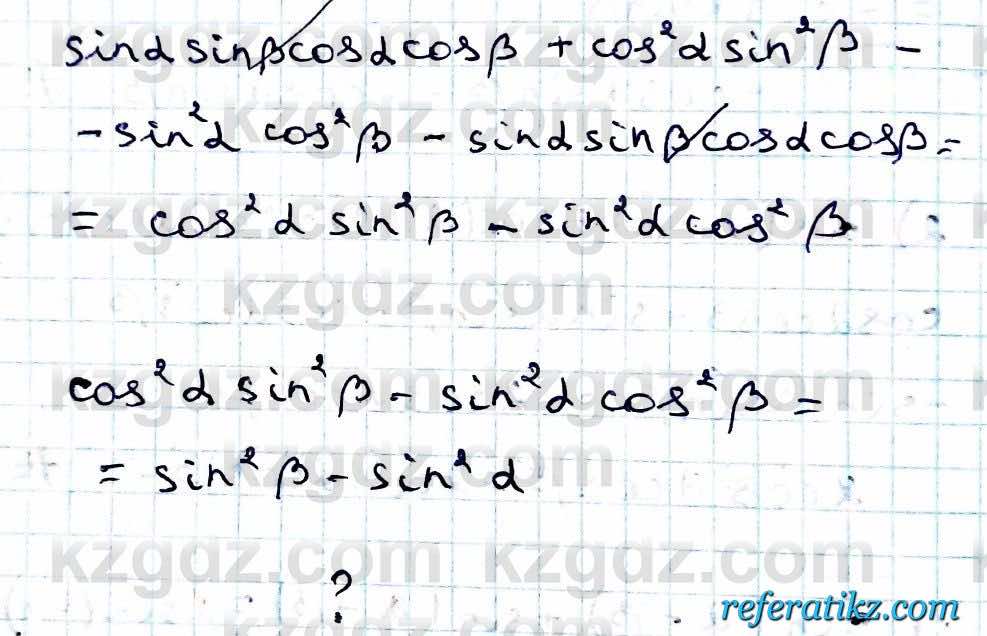 sinα sinβ cosα cosβ + cos²α sin²β -
- sin²α cos²β - sinα sinβ cosα cosβ =
= cos²α sin²β - sin²α cos²β
kzgdz.com
cos²α sin²β - sin²α cos²β =
= sin²β - sin²α
kzgdz.com
?
referatikz.com